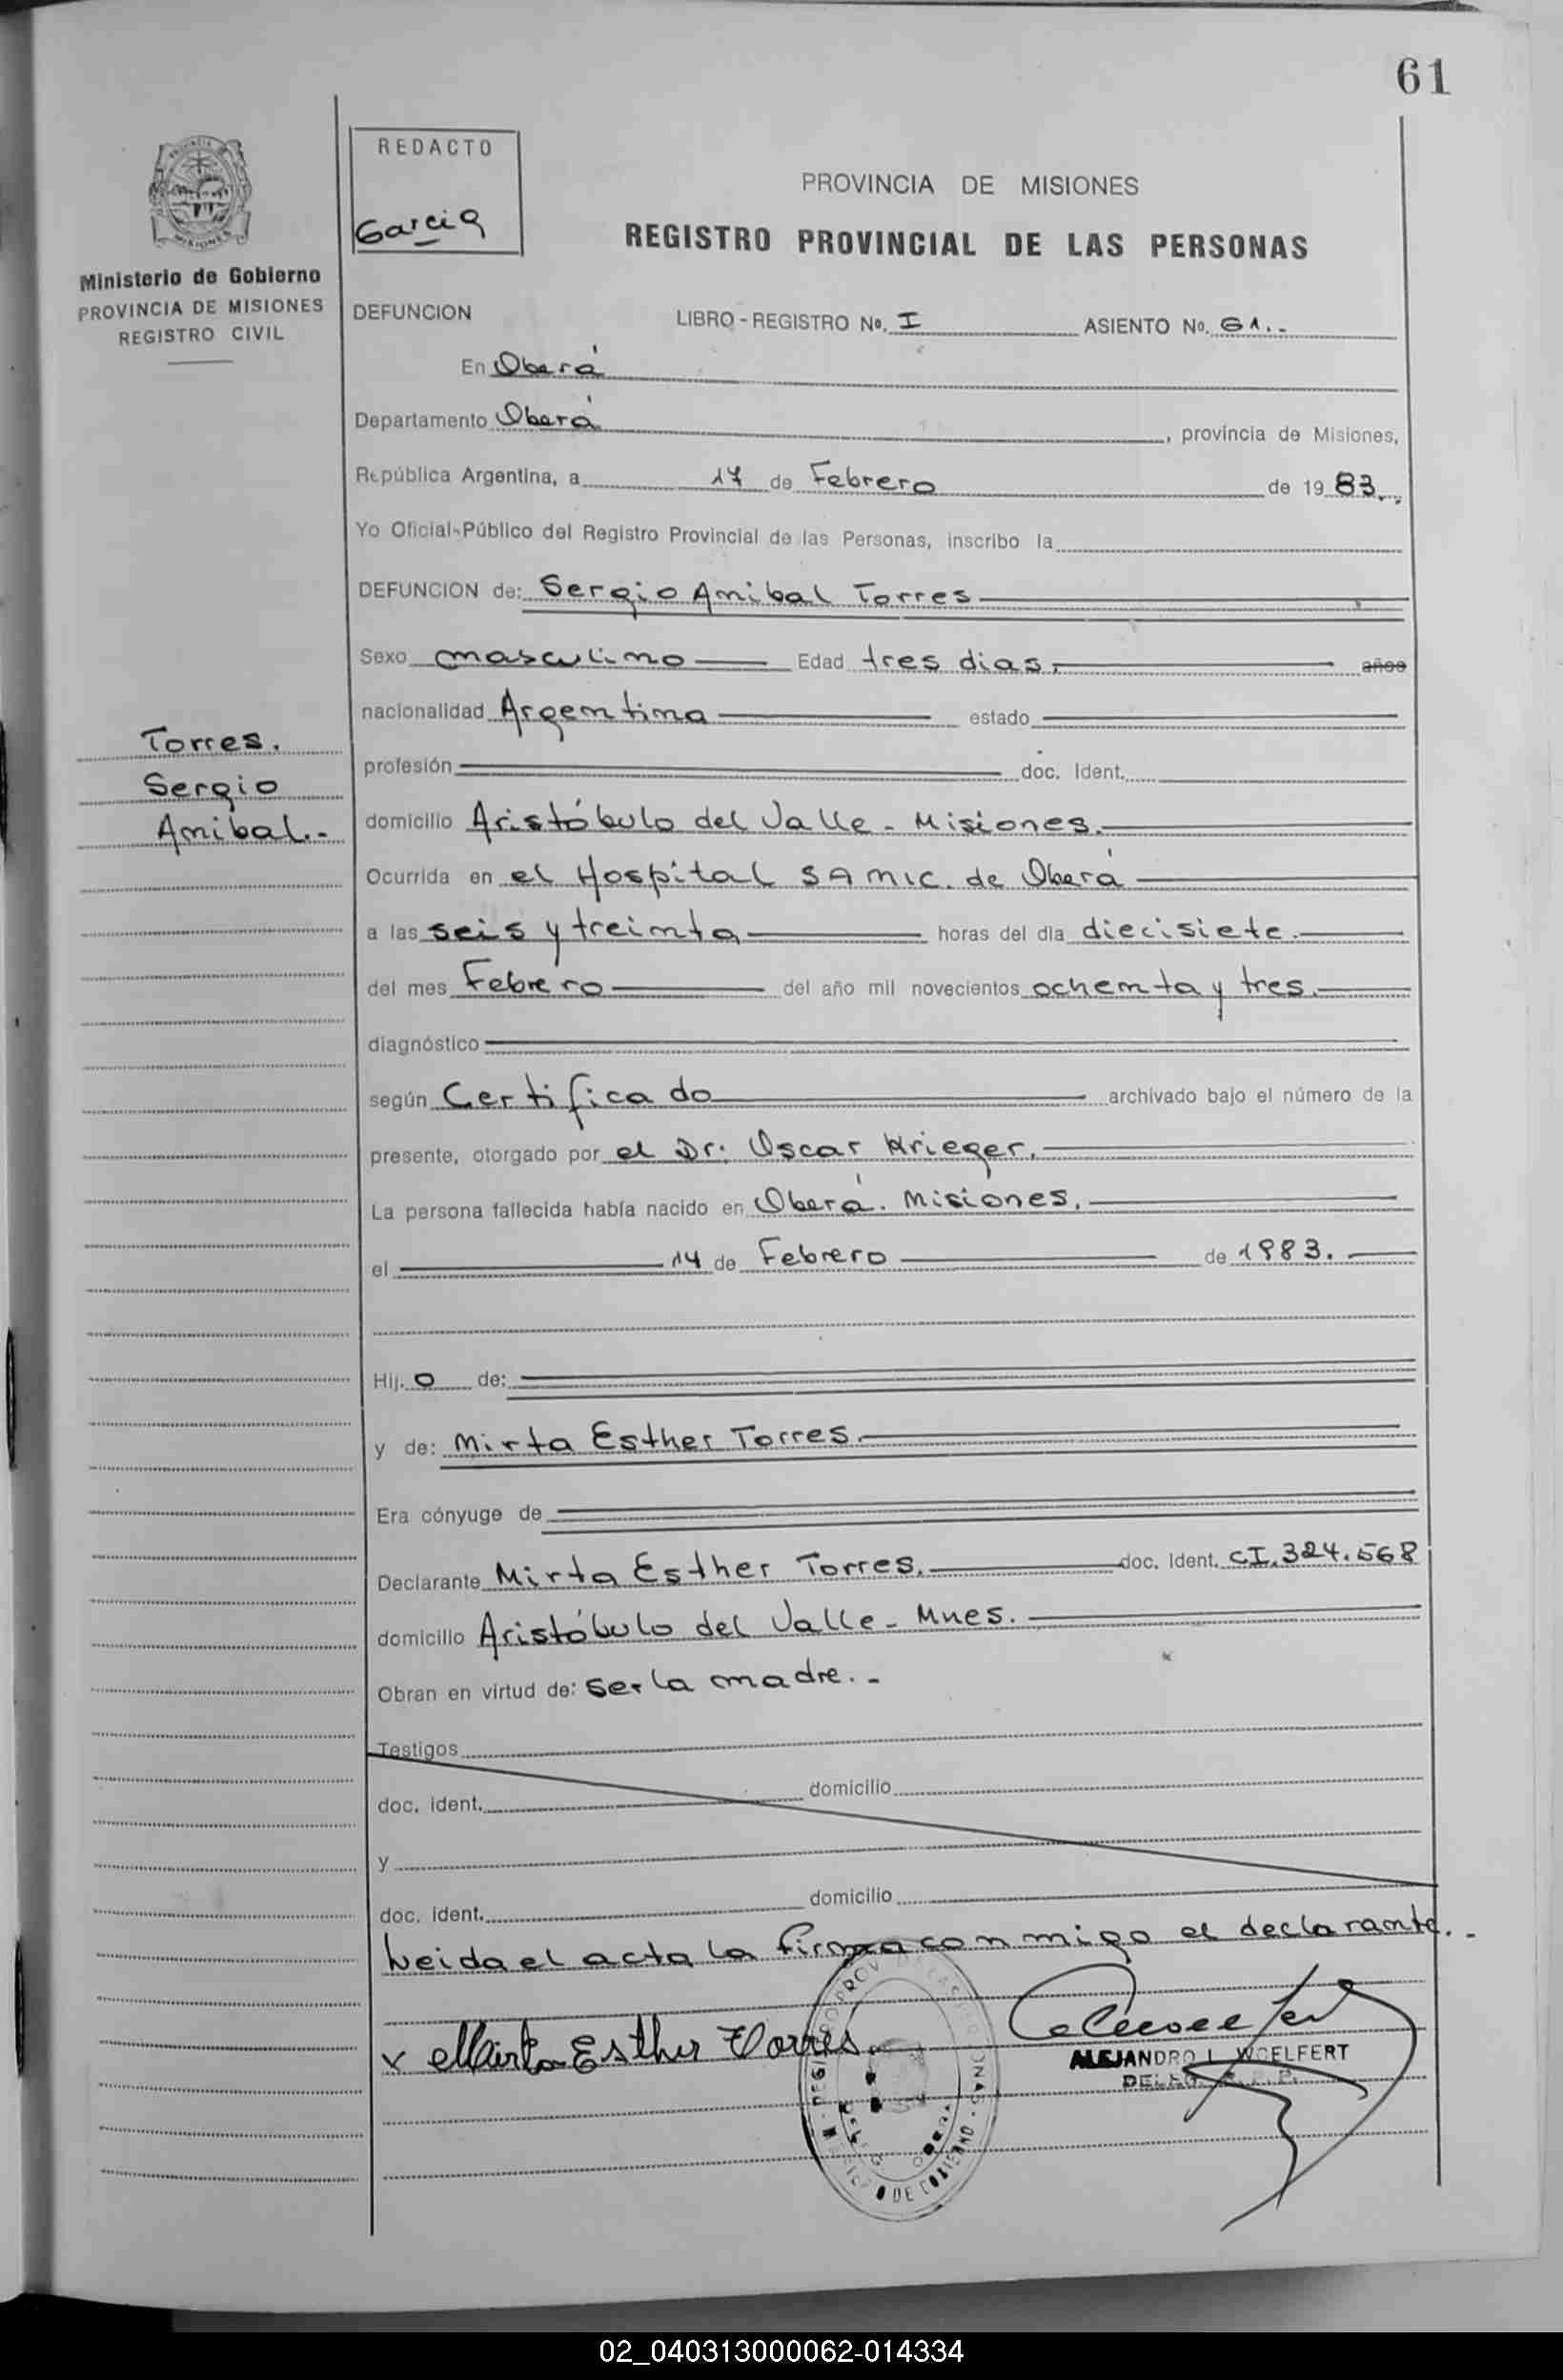 61
REDACTO
Garcia
PROVINCIA DE MISIONES
REGISTRO PROVINCIAL DE LAS PERSONAS
Ministerio de Gobierno
PROVINCIA DE MISIONES
REGISTRO CIVIL
DEFUNCION LIBRO - REGISTRO No. I ASIENTO No. 61.-
En Oberá
Departamento Oberá, provincia de Misiones,
República Argentina, a 17 de Febrero de 1983.,
Yo Oficial-Público del Registro Provincial de las Personas, inscribo la
DEFUNCION de: Sergio Anibal Torres
Sexo masculino Edad tres dias. años
nacionalidad Argentina estado
Torres.
Sergio
Anibal.-
profesión doc. Ident.
domicilio Aristóbulo del Valle - Misiones.
Ocurrida en el Hospital SAMIC. de Oberá
a las seis y treinta horas del dia diecisiete.
del mes Febrero del año mil novecientos ochenta y tres.
diagnóstico
según Certificado archivado bajo el número de la
presente, otorgado por el Dr. Oscar Krieger.
La persona fallecida había nacido en Oberá. Misiones.
el 14 de Febrero de 1983.
Hij.o de:
y de: Mirta Esther Torres.
Era cónyuge de
Declarante Mirta Esther Torres. doc. Ident. CI.324.568
domicilio Aristóbulo del Valle - Mnes.
Obran en virtud de: ser la madre.-
Testigos
doc. ident. domicilio
y
doc. ident. domicilio
Leida el acta la firma conmigo el declarante.-
x Mirta Esther Torres
ALEJANDRO L. WOELFERT
02_040313000062-014334